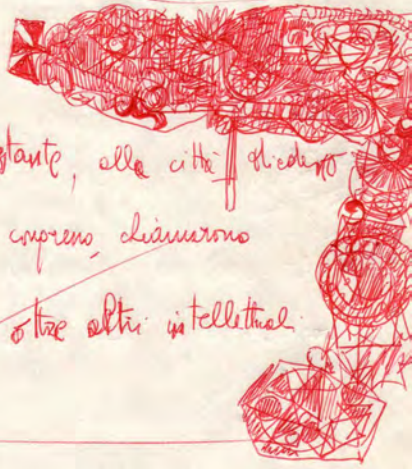 stante, alla città
congreno, chiamarono
oltre altri intellettuali